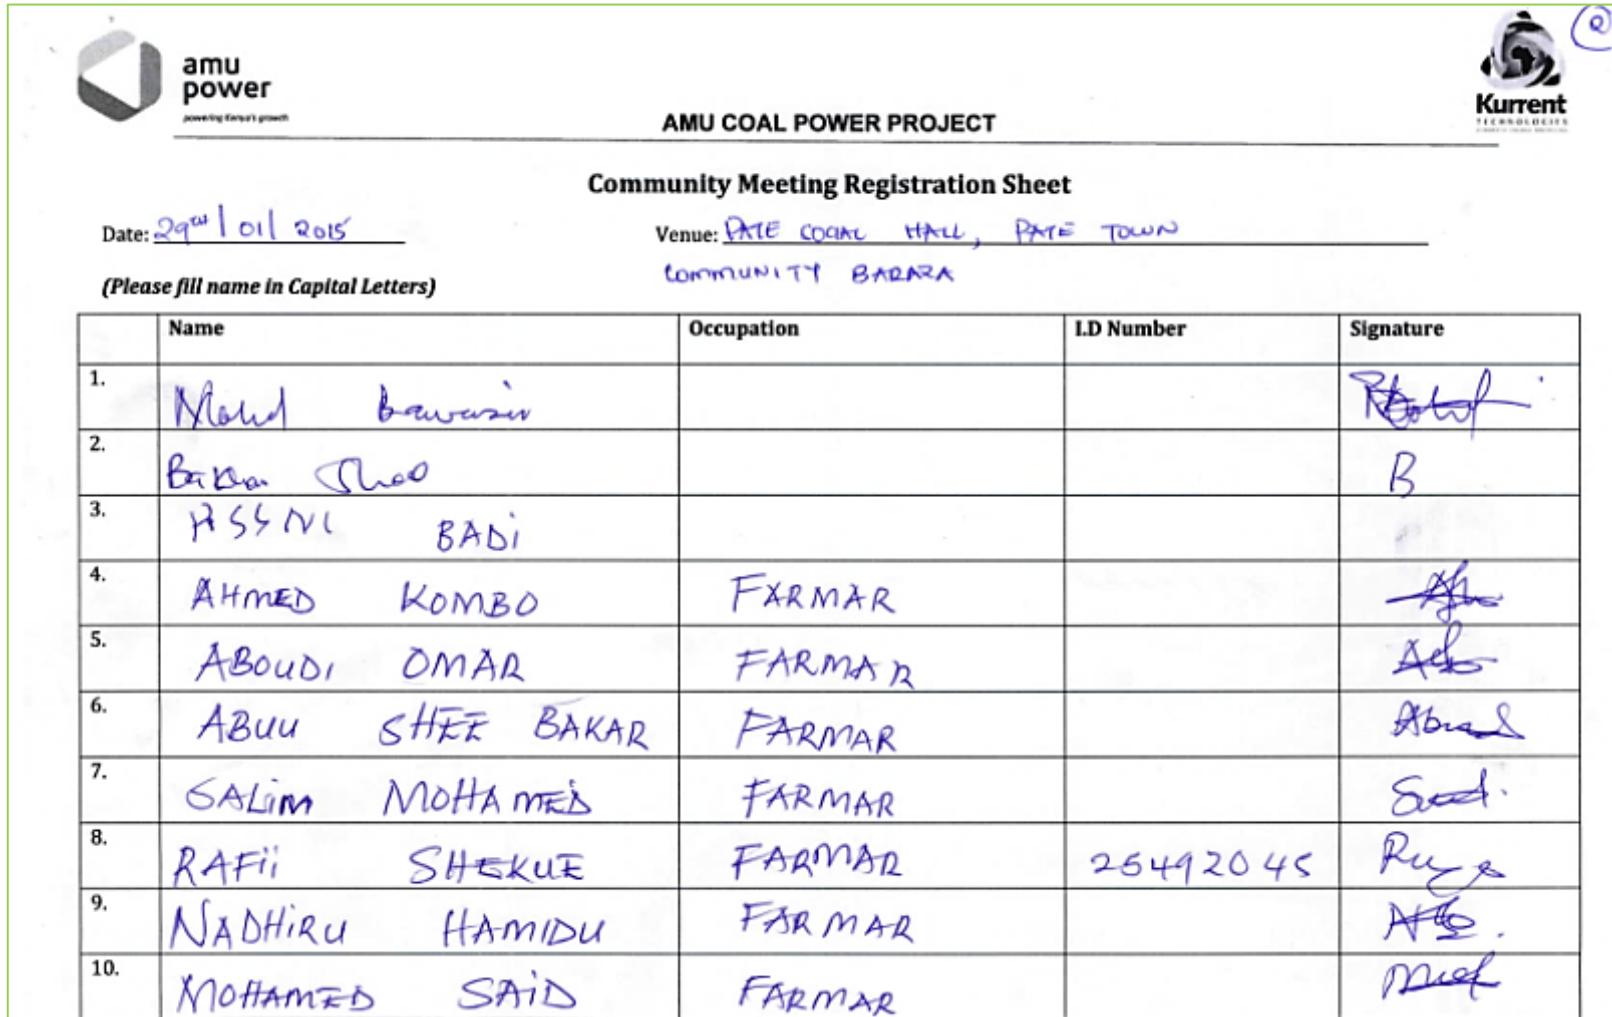 amu
power
powering Kenya's growth
Kurrent
TECHNOLOGIES
AMU COAL POWER PROJECT
Community Meeting Registration Sheet
Date: 29TH/01/2015 Venue: PATE COCIAL HALL, PATE TOWN
COMMUNITY BARAZA
(Please fill name in Capital Letters)
Name Occupation I.D Number Signature
1. Mohd
2. Bakar Shee B
3. BADi
4. AHMED KOMBO FARMAR
5. ABOUDi OMAR FARMAR
6. ABUU SHEE BAKAR FARMAR
7. SALiM MOHAMED FARMAR
8. RAFii SHEKUE FARMAR 25492045
9. NADHiRU HAMIDU FARMAR
10. MOHAMED SAiD FARMAR